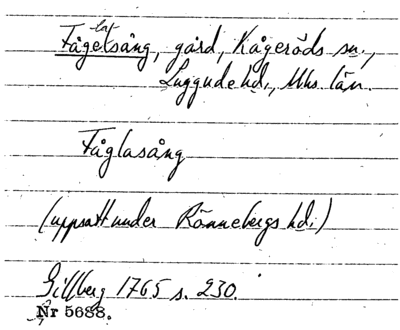 Fågelsång, gård, Kågeröds sn.,
Luggude hd., Mhs. län.
Fåglasång
(uppsatt under Rönnebergs hd.)
Gillberg 1765 s. 230.
Nr 5688.